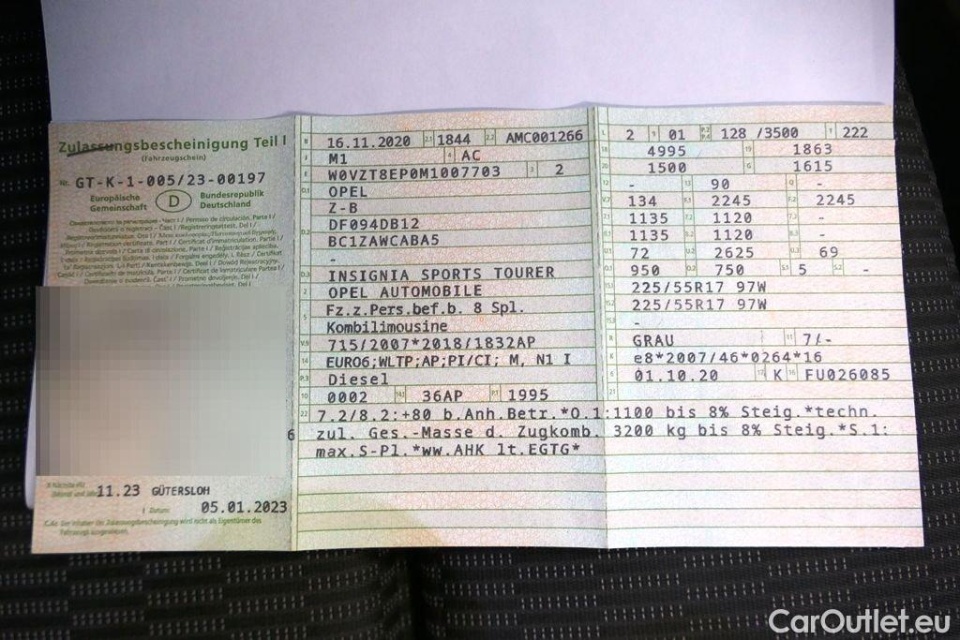 Zulassungsbescheinigung Teil I
(Fahrzeugschein)
Nr. GT-K-1-005/23-00197
Europäische Gemeinschaft D Bundesrepublik Deutschland
11.23 GÜTERSLOH
05.01.2023
16.11.2020 2.1 1844 2.2 AMC001266
M1 AC
W0VZT8EP0M1007703 2
OPEL
Z-B
DF094DB12
BC1ZAWCABA5
-
INSIGNIA SPORTS TOURER
OPEL AUTOMOBILE
Fz.z.Pers.bef.b. 8 Spl.
Kombilimousine
715/2007*2018/1832AP
EURO6;WLTP;AP;PI/CI; M, N1 I
Diesel
0002 36AP 1995
2 01 128 /3500 222
4995 1863
1500 1615
- 90 -
134 2245 2245
1135 1120 -
1135 1120 -
72 2625 69
950 750 5 -
225/55R17 97W
225/55R17 97W
-
GRAU 7/-
e8*2007/46*0264*16
01.10.20 K FU026085
22 7.2/8.2:+80 b.Anh.Betr.*O.1:1100 bis 8% Steig.*techn.
zul. Ges.-Masse d. Zugkomb. 3200 kg bis 8% Steig.*S.1:
max.S-Pl.*ww.AHK lt.EGTG*
6
CarOutlet.eu